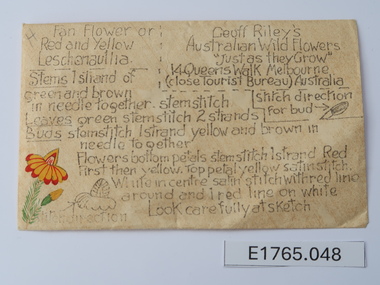 Fan Flower or
Red and Yellow
Leschenaultia
Geoff Riley's
Australian Wild Flowers
"Just as they Grow"
14 Queens Walk Melbourne
(close Tourist Bureau) Australia
Stems 1 strand of
green and brown
in needle together. stemstitch
Leaves green stemstitch 2 strands
Stitch direction
for bud
Buds stemstitch 1 strand yellow and brown in
needle together
Flowers bottom petals stemstitch 1 strand Red
First then yellow. Top petal yellow satin stitch.
White in centre satin stitch with red line
around and 1 red line on white
Look carefully at sketch
direction
E1765.048